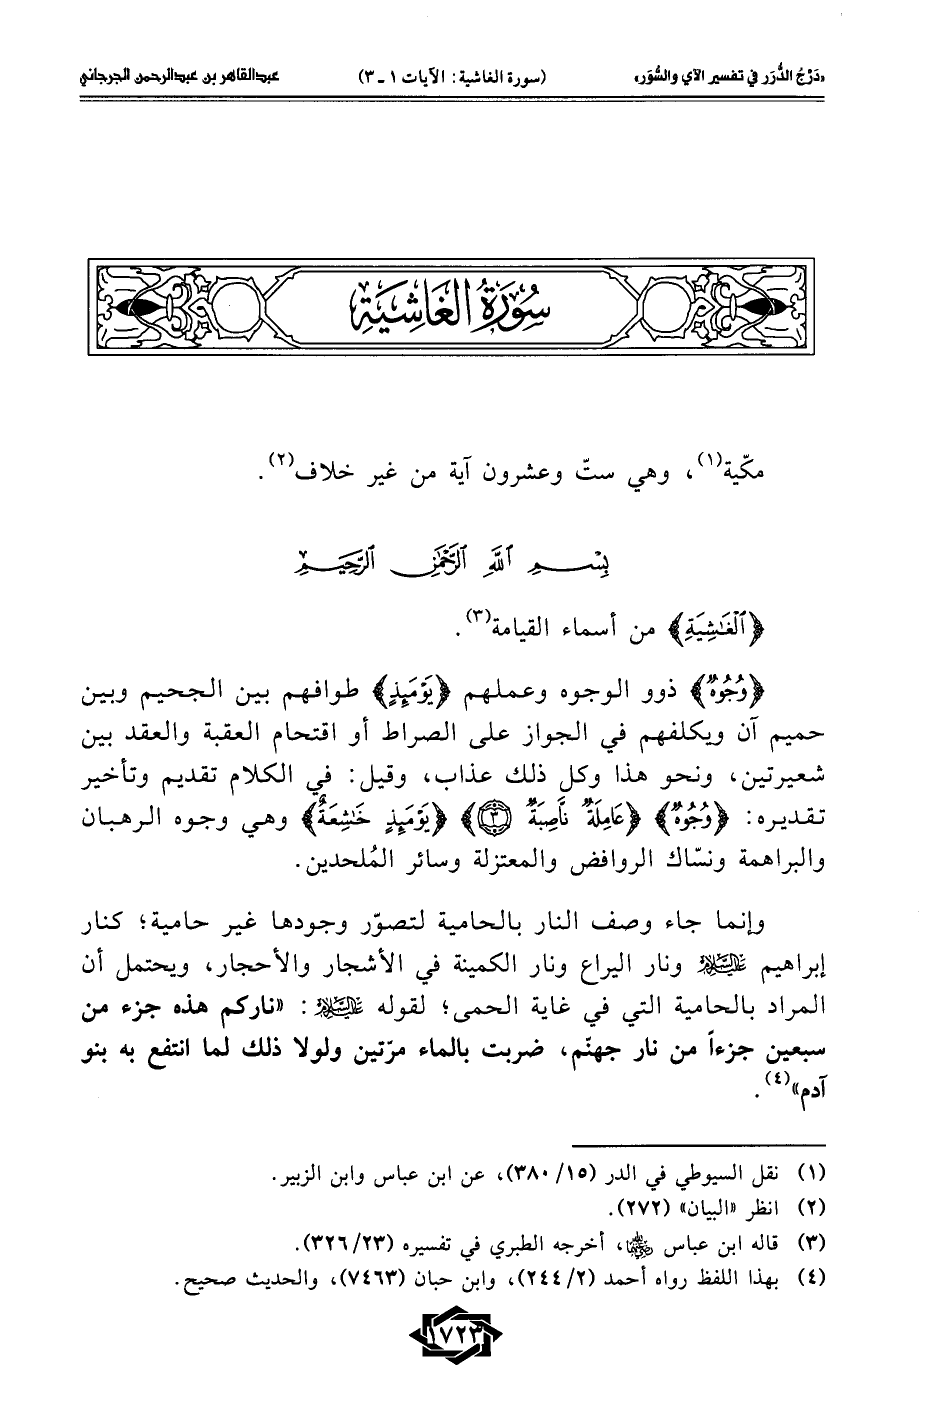 «دَرْجُ الدُّرَر في تفسير الآي والسُّوَر» (سورة الغاشية: الآيات ١ ـ ٣) عبدالقاهر بن عبدالرحمن الجرجاني
سُورَةُ الغَاشِيَةِ
مكّية(١)، وهي ستّ وعشرون آية من غير خلاف(٢).
بِسْمِ ٱللَّهِ ٱلرَّحْمَٰنِ ٱلرَّحِيمِ
﴿ٱلْغَٰشِيَةِ﴾ من أسماء القيامة(٣).
﴿وُجُوهٌ﴾ ذوو الوجوه وعملهم ﴿يَوْمَئِذٍ﴾ طوافهم بين الجحيم وبين
حميم آن ويكلفهم في الجواز على الصراط أو اقتحام العقبة والعقد بين
شعيرتين، ونحو هذا وكل ذلك عذاب، وقيل: في الكلام تقديم وتأخير
تقديره: ﴿وُجُوهٌ﴾ ﴿عَامِلَةٌ نَّاصِبَةٌ ٣﴾ ﴿يَوْمَئِذٍ خَٰشِعَةٌ﴾ وهي وجوه الرهبان
والبراهمة ونسّاك الروافض والمعتزلة وسائر المُلحدين.
وإنما جاء وصف النار بالحامية لتصوّر وجودها غير حامية؛ كنار
إبراهيم عليه السلام ونار اليراع ونار الكمينة في الأشجار والأحجار، ويحتمل أن
المراد بالحامية التي في غاية الحمى؛ لقوله عليه السلام: «ناركم هذه جزء من
سبعين جزءاً من نار جهنّم، ضربت بالماء مرّتين ولولا ذلك لما انتفع به بنو
آدم»(٤).
(١) نقل السيوطي في الدر (٣٨٠/١٥)، عن ابن عباس وابن الزبير.
(٢) انظر «البيان» (٢٧٢).
(٣) قاله ابن عباس رضي الله عنهما، أخرجه الطبري في تفسيره (٣٢٦/٢٣).
(٤) بهذا اللفظ رواه أحمد (٢٤٤/٢)، وابن حبان (٧٤٦٣)، والحديث صحيح.
١٧٢٣